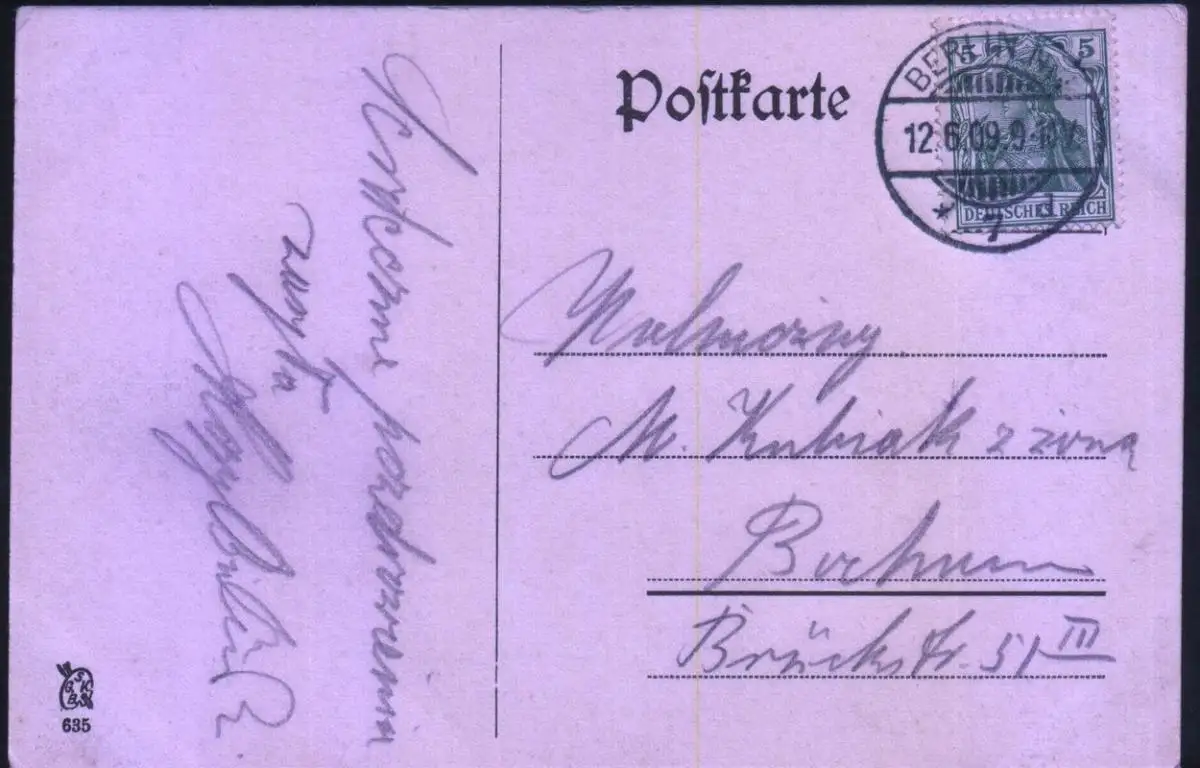 Postkarte
BERLIN
12.6.09.9-10V.
* 7
5 5
DEUTSCHES REICH
Serdeczne pozdrowienia
zasyła
Wielmożny
M. Kubiak z żoną
Bochum
Brückstr. 51 III
W
S
G. K.
B.
635